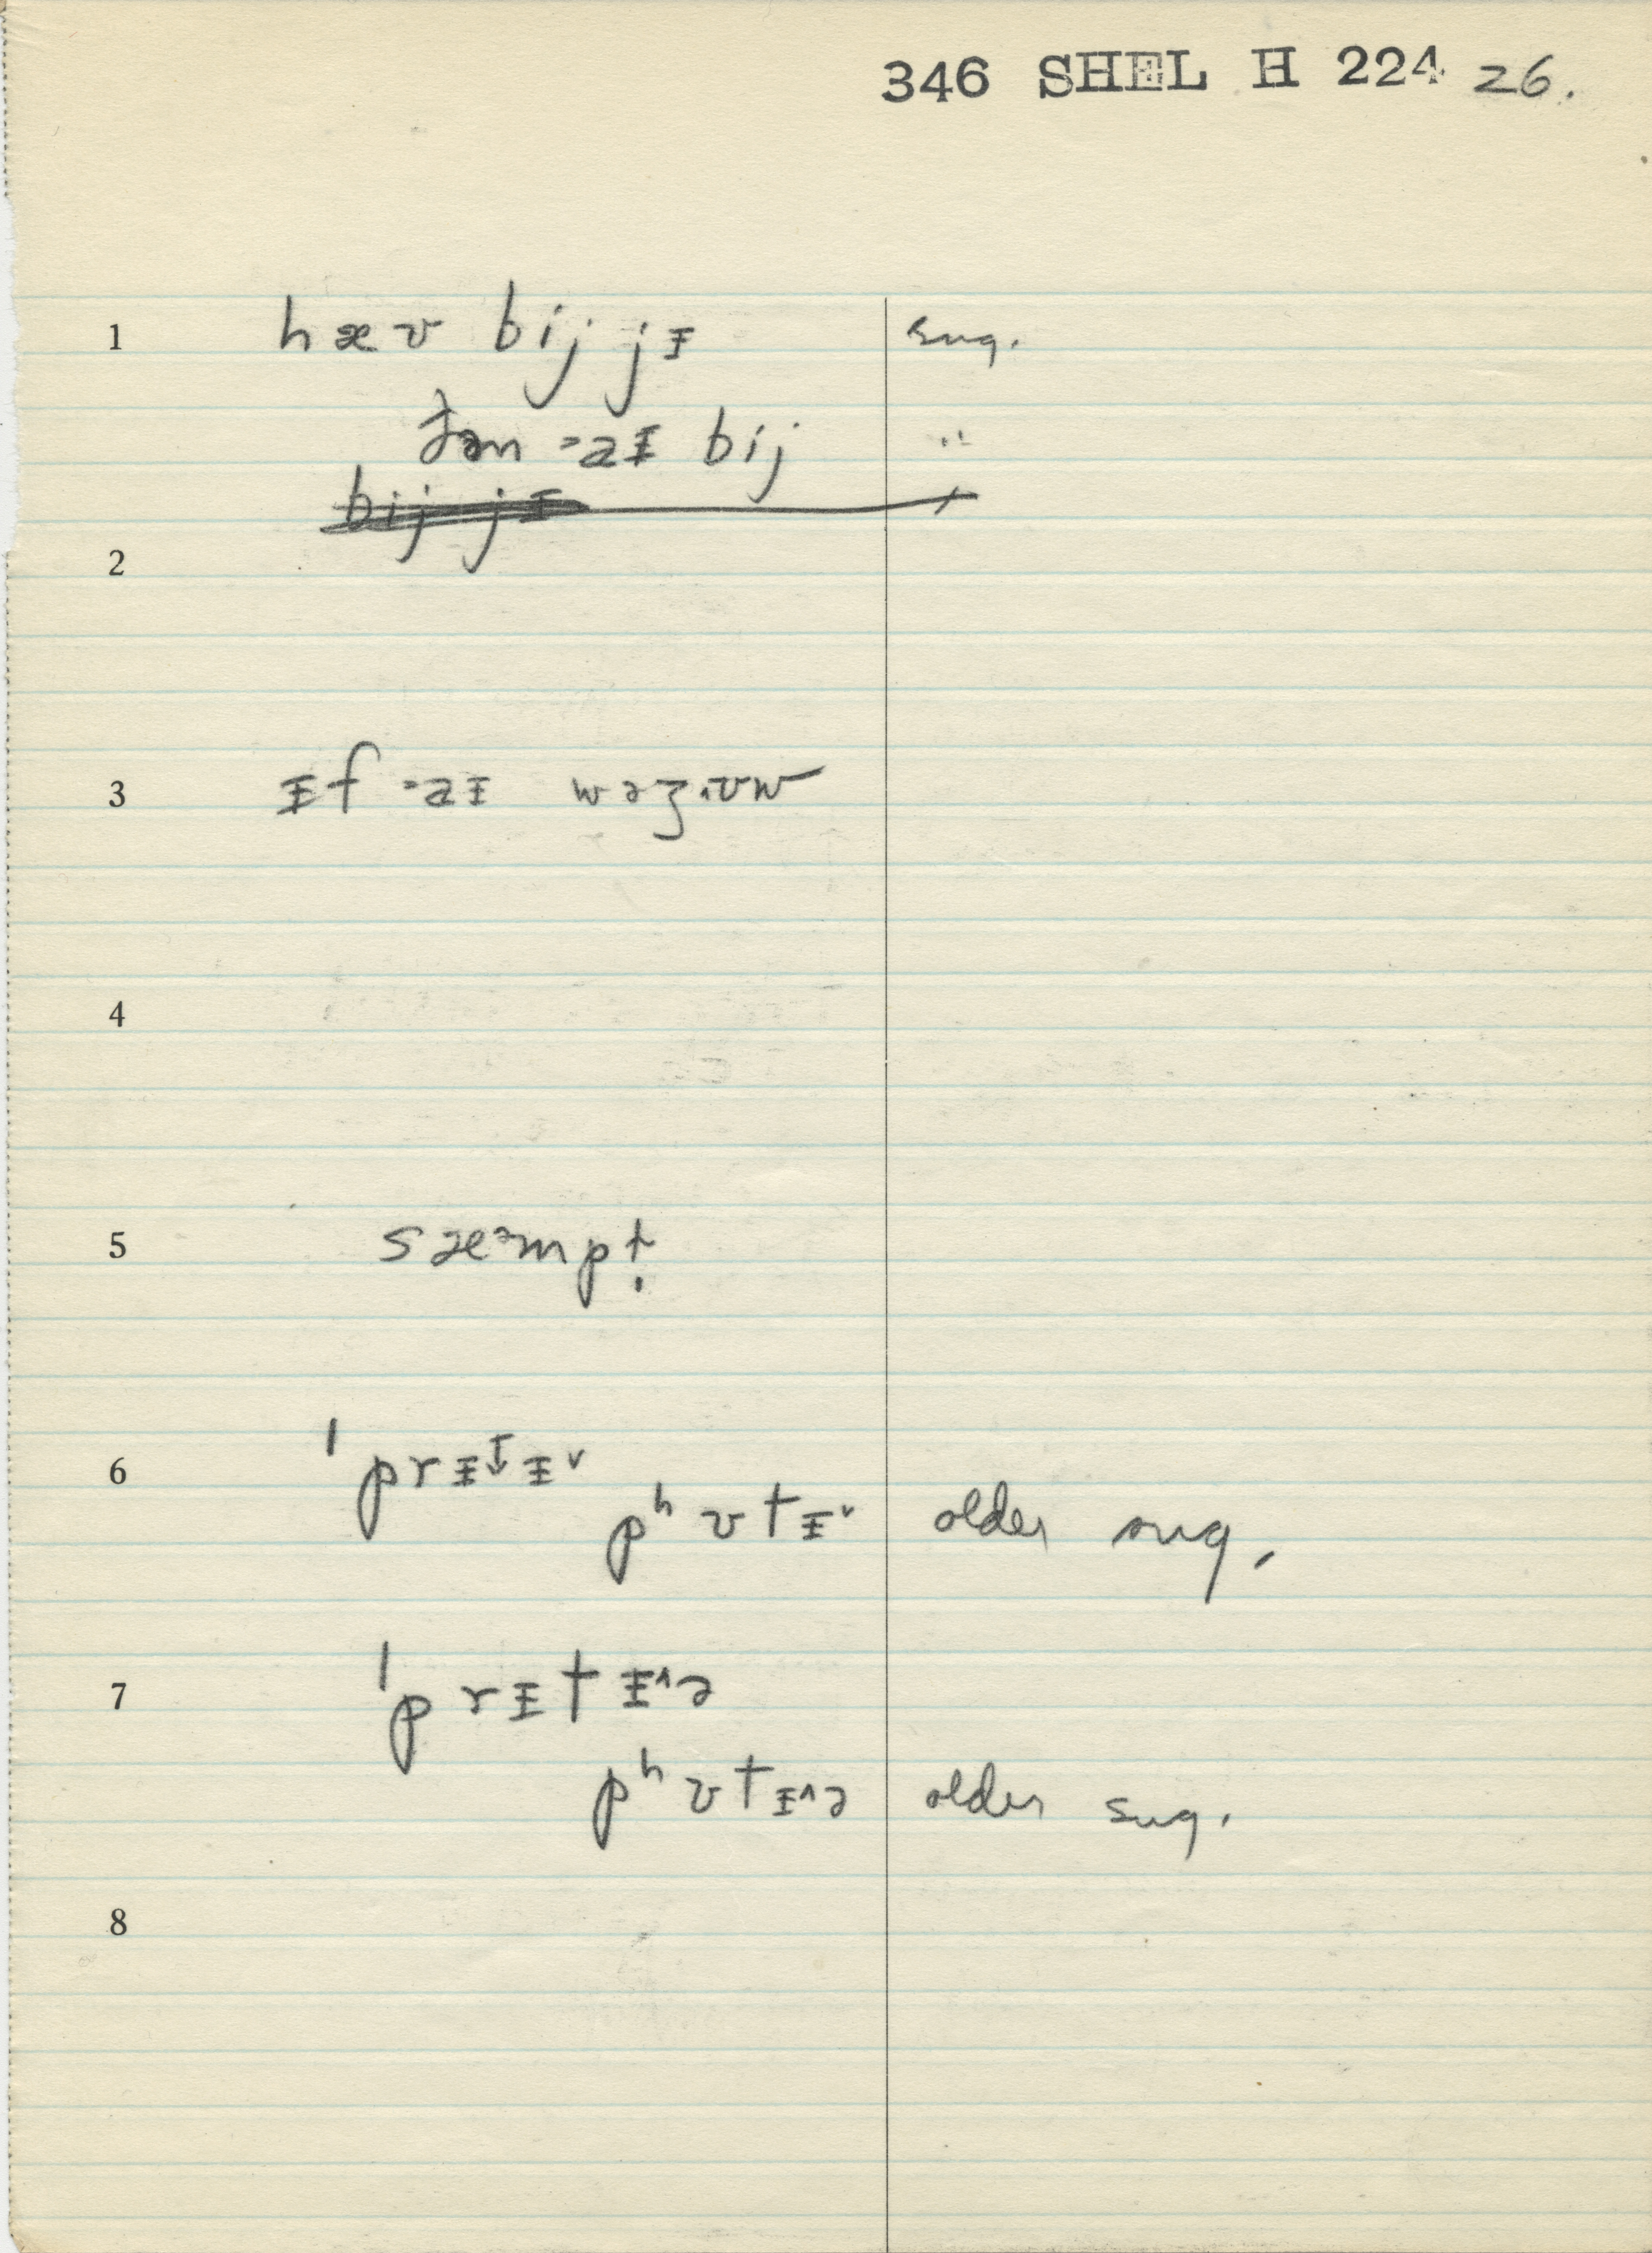 346 SHEL H 224 26.
1 hæv bij jɪ sug.
aɪ bij "
bij jɪ
2
3 ɪf aɪ wəz
4
5 sæᵊmpt̞
6 ˈprɪt̬ɪ˅
pʰʊtɪ˅ older sug.
7 ˈprɪtɪ˄ə
pʰʊtɪ˄ə older sug.
8